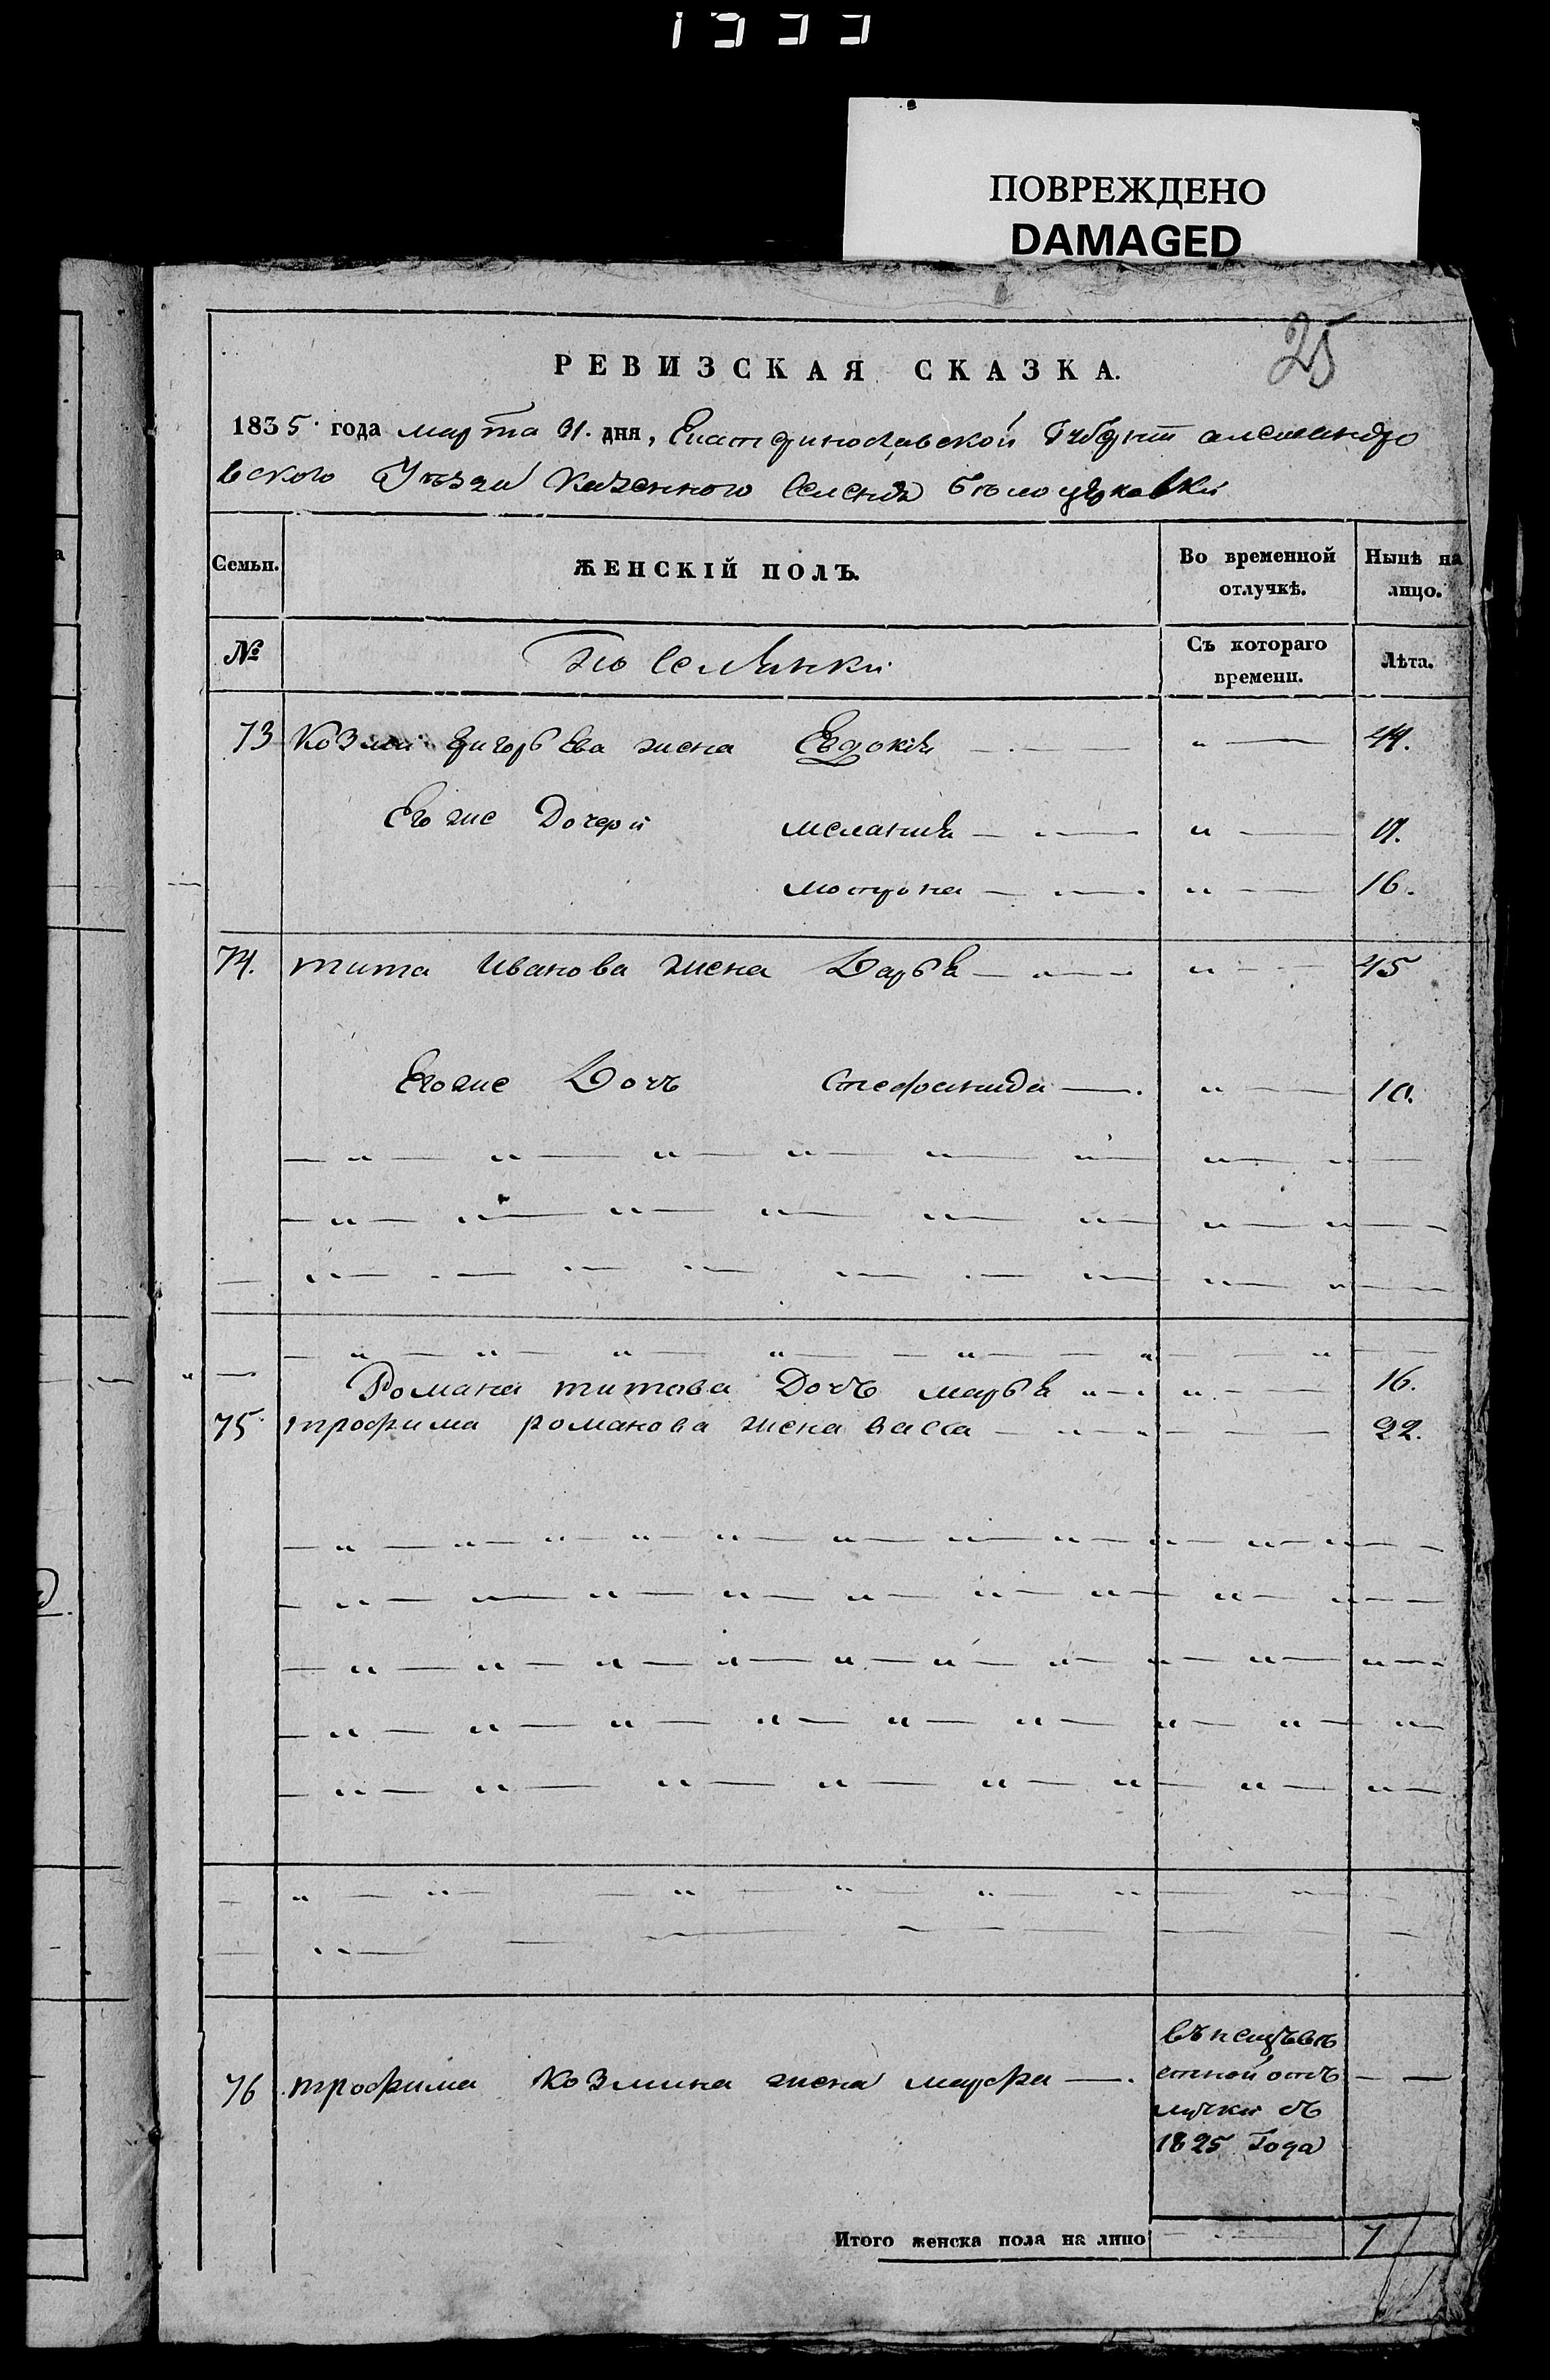 ПОВРЕЖДЕНО
DAMAGED
25
РЕВИЗСКАЯ СКАЗКА.
1835 года марта 31. дня, Екатеринославской Губернии александро
вского Уезда Казенного селения Белоцерковки
Семьи. ЖЕНСКІЙ ПОЛЪ. Во временной отлучкѣ. Нынѣ на лицо.
№ поселянки Съ котораго времени. Лѣта.
73 Козмы григорьева жена Евдокія — " — 44.
Его же Дочери меланія — " —
мотрона — " — 16.
74. тита Иванова жена Дарья — " — 45
Егоже Дочь стефанида — " — 10.
Романа титова Дочь марья " — 16.
75. трофима романова жена васса — 22.
76 трофима Козмина жена мавра — въ неизвѣстной отлучки съ 1825 Года — —
Итого женска пола на лицо — 7